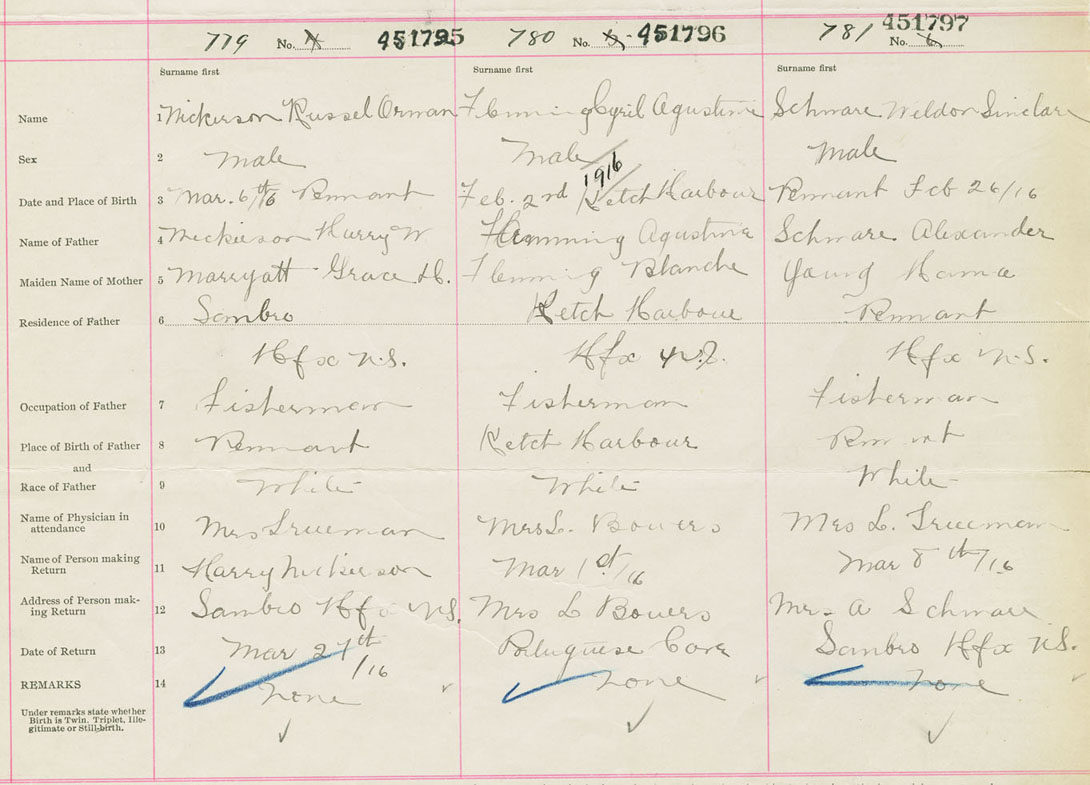 779 No. 4 451795 780 No. 5 451796 781 No. 6 451797
Surname first Surname first Surname first
Name 1 Nickerson Russel Orman Flemming Cyril Agustine Schware Weldon Sinclare
Sex 2 Male Male Male
1916
Date and Place of Birth 3 Mar. 6th/16 Pennant Feb. 2nd Ketch Harbour Pennant Feb 26/16
Name of Father 4 Nickerson Harry W. Flemming Agustine Schware Alexander
Maiden Name of Mother 5 Marryatt Grace H. Flemming Blanche Young
Residence of Father 6 Sambro Ketch Harbour Pennant
Hfx N.S. Hfx N.S. Hfx N.S.
Occupation of Father 7 Fisherman Fisherman Fisherman
Place of Birth of Father 8 Pennant Ketch Harbour Pennant
and
Race of Father 9 White White White
Name of Physician in
attendance 10 Mrs Trueeman Mrs L. Bowers Mrs L. Trueeman
Name of Person making
Return 11 Harry Nickerson Mar 1st/16 Mar 8th/16
Address of Person mak-
ing Return 12 Sambro Hfx N.S. Mrs L Bowers Mr. A Schware
Date of Return 13 Mar 27th/16 Portuguese Cove Sambro Hfx N.S.
REMARKS 14 None None None
Under remarks state whether
Birth is Twin. Triplet, Ille-
gitimate or Still-birth.